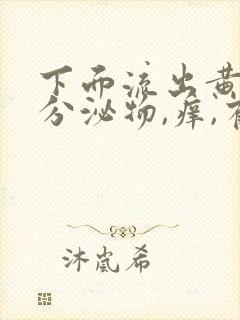 下而流出黄
分泌物,痒,有
沐岚希